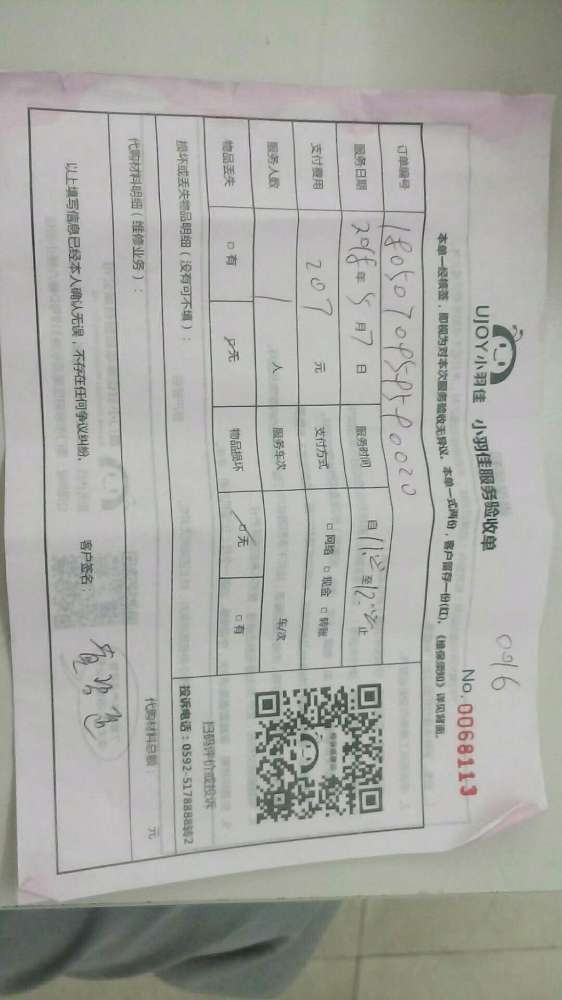 UJOY小羽佳 小羽佳服务验收单
0916
No. 0068113
本单一经核签，即视为对本次服务验收无异议。本单一式两份，客户留存一份(红)。《维保须知》详见背面。
订单编号
服务日期 2018年 5 月 7 日 服务时间 自 11:00 至 12:00 止
支付费用 207 元 支付方式 □ 网络 □ 现金 □ 转账
服务人数 1 人 服务车次 车/次
物品丢失 □ 有 □ 无 物品损坏 □ 无 □ 有
扫码评价或投诉
投诉电话：0592-5178888转2
损坏或丢失物品明细（没有可不填）：
代购材料明细（维修业务）： 代购材料总额： 元
以上填写信息已经本人确认无误，不存在任何争议纠纷。 客户签名：